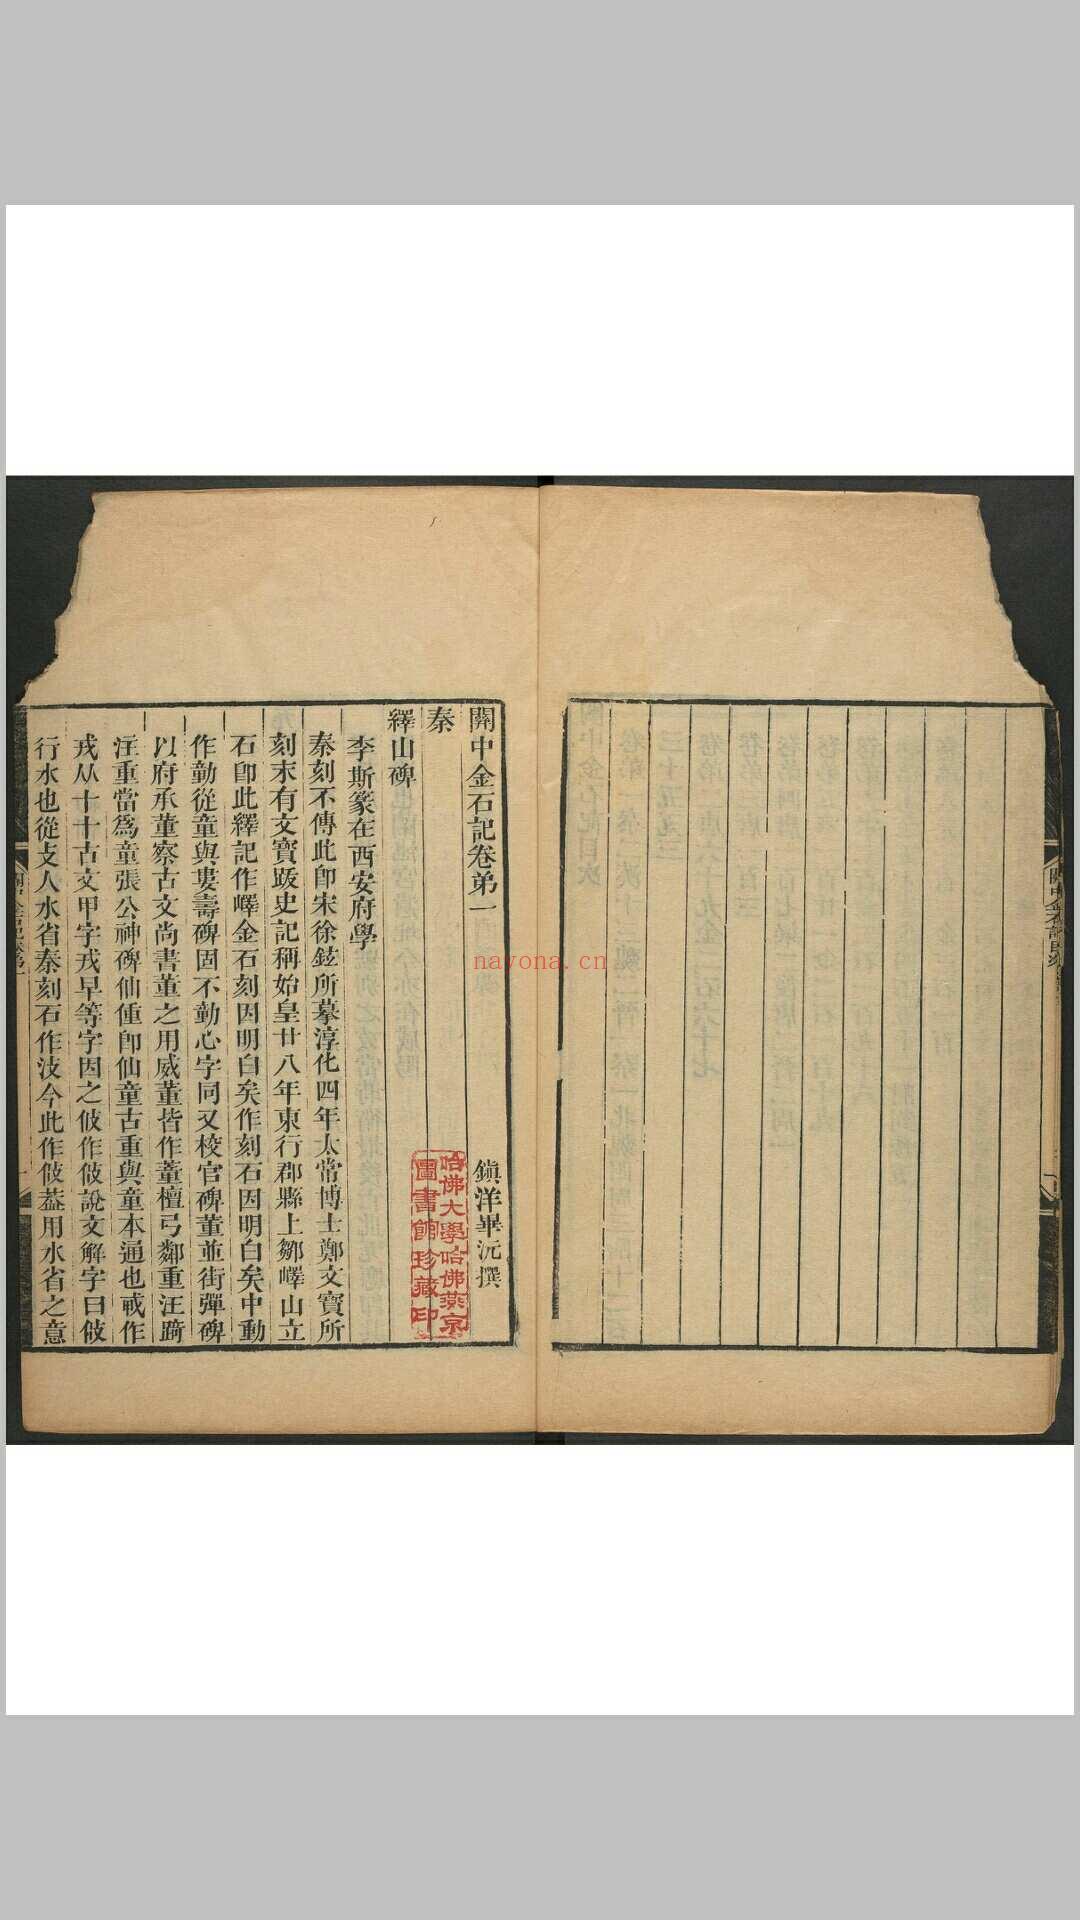 關中金石記卷弟一
鎮洋畢沅撰
秦
繹山碑
李斯篆在西安府學
秦刻不傳此卽宋徐鉉所摹淳化四年太常博士鄭文寶所
刻末有文寶跋史記稱始皇廿八年東行郡縣上鄒嶧山立
石卽此繹記作嶧金石刻因明白矣作刻石因明白矣中動
作勭從童與婁壽碑固不勭心字同又校官碑董並街彈碑
以府承董察古文尚書董之用威董皆作蕫檀弓鄰重汪踦
注重當爲童張公神碑仙偅卽仙童古重與童本通也戒作
戎从十十古文甲字戎早等字因之攸作攸說文解字曰攸
行水也從攴人水省秦刻石作汥今此作攸葢用水省之意
哈佛大學哈佛燕京
圖書館珍藏印
關中金石記
nayona.cn